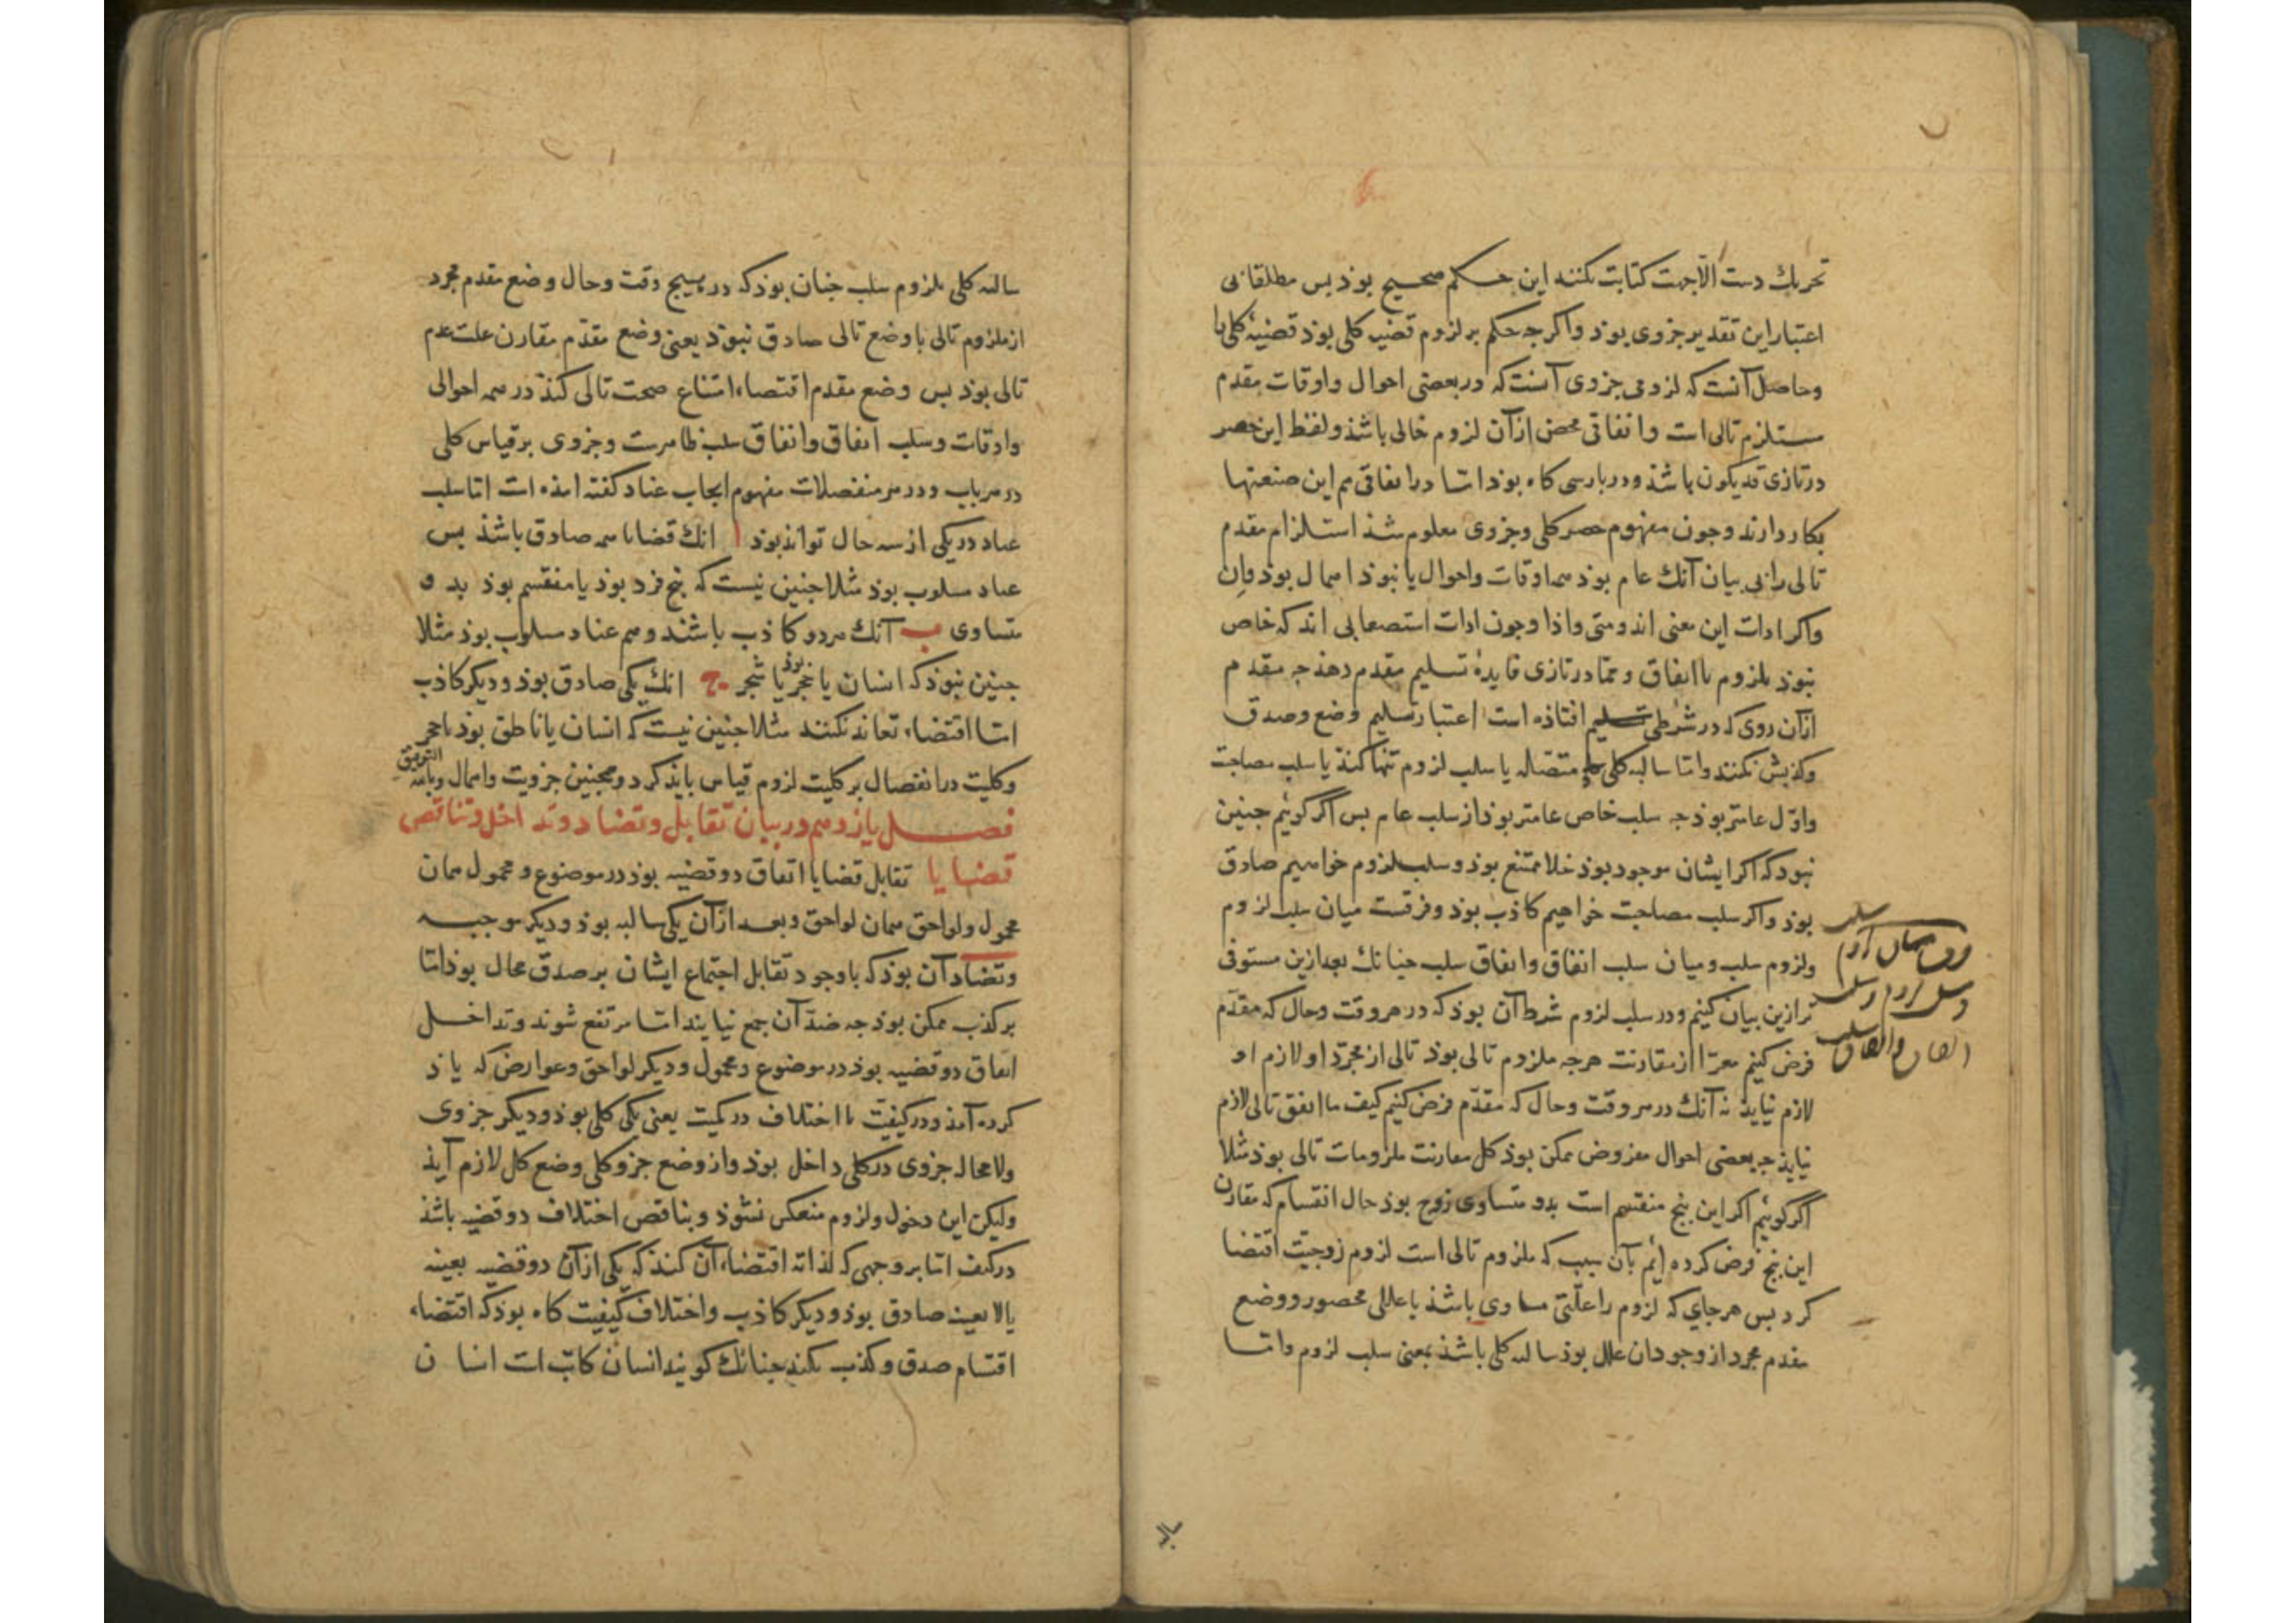 تحریك دست الاجهت كتابت نكنند این حكم صحیح بوذ بس مطلقا نی
اعتبار این تقدیر جزوی بوذ واكرجه حكم بر لزوم قضیه كلی بوذ قضیهٔ كلی با
وحاصل آنست كه لزومی جزوی آنست كه در بعضی احوال واوقات مقدم
مستلزم تالی است واتفاقی محض از آن لزوم خالی باشذ ولفظ این حصر
در تازی قد یكون باشذ ودر بارسی كاه بوذ اما در اتفاقی هم این صنعتها
بكار دارند وجون مفهوم حصر كلی وجزوی معلوم شذ استلزام مقدم
تالی را بی بیان آنك عام بوذ همه اوقات واحوال یا نبوذ اهمال بوذ وان
واكر ادات این معنی اند ومتی واذا وجون ادات استصحابی اند كه خاص
نبوذ بلزوم با اتفاق ومما در تازی فایدهٔ تسلیم مقدم دهذ جه مقدم
از آن روی كه در شرطی افتاذه است اعتبار تسلیم وضع وصدق
وكذبش نكنند واما سالبه كلی متصله یا سلب لزوم تنها كنذ یا سلب مصاحبت
واول عامتر بوذ جه سلب خاص عامتر بوذ از سلب عام بس اكر كوئیم جنین
نبوذ كه اكر ایشان موجود بوذ خلا ممتنع بوذ وسلب لزوم خواهیم صادق
بوذ واكر سلب مصاحبت خواهیم كاذب بوذ وفرقست میان سلب لزوم
ولزوم سلب ومیان سلب اتفاق واتفاق سلب جنانك بعد ازین مستوفی
تر ازین بیان كنیم ودر سلب لزوم شرط آن بوذ كه در هر وقت وحال كه مقدم
فرض كنیم معرا از مقارنت هرجه ملزوم تالی بوذ تالی از مجرد او لازم او
لازم نیایذ نه آنك در هر وقت وحال كه مقدم فرض كنیم كیف ما اتفق تالی لازم
نیایذ جه بعضی احوال مفروض ممكن بوذ كل مقارنت ملزومات تالی بوذ مثلا
اكر كوئیم اكر این بنج منقسم است بدو متساوی زوج بوذ حال انقسام كه مقارن
این بنج فرض كرده ایم بآن سبب كه ملزوم تالی است لزوم زوجیت اقتضا
كرد بس هر جای كه لزوم را علتی مساوی باشذ یا عللی محصور ووضع
مقدم مجرد از وجود ان علل بوذ سالبه كلی باشذ بمعنی سلب لزوم واما
سلب
وفرق میان لزوم
وسلب لزوم وسلب
اتفاق واتفاق سلب
سالبه كلی بلزوم سلب جنان بوذ كه در هیچ وقت وحال وضع مقدم مجرد
از ملزوم تالی با وضع تالی صادق نبوذ یعنی وضع مقدم مقارن علت عدم
تالی بوذ بس وضع مقدم اقتضاء امتناع صحت تالی كنذ در همه احوالی
واوقات وسلب اتفاق واتفاق سلب ظاهرست وجزوی بر قیاس كلی
در هر باب ودر هر منفصلات مفهوم ایجاب عناد كفته امذه است اما سلب
عناد در یكی از سه حال تواند بوذ ا انك قضایا همه صادق باشذ بس
عناد مسلوب بوذ مثلا جنین نیست كه بنج فرد بوذ یا منقسم بوذ بدو
متساوی ب آنك هر دو كاذب باشند وهم عناد مسلوب بوذ مثلا
جنین نبوذ كه انسان یا حجر بوذ یا شجر ج انك یكی صادق بوذ ودیكر كاذب
اما اقتضاء تعاند نكنند مثلا جنین نیست كه انسان یا ناطق بوذ یا حجر
وكلیت در انفصال بر كلیت لزوم قیاس بایذ كرد وهمجنین جزویت واهمال وبالله التوفیق
فصل یازدهم در بیان تقابل وتضاد وتداخل وتناقض
قضایا تقابل قضایا اتفاق دو قضیه بوذ در موضوع ومحمول همان
محمول ولواحق همان لواحق وبعد از آن یكی سالبه بوذ ودیكر موجبه
وتضاد آن بوذ كه با وجود تقابل اجتماع ایشان بر صدق محال بوذ اما
بر كذب ممكن بوذ جه ضد آن جمع نیایند اما مرتفع شوند وتداخل
اتفاق دو قضیه بوذ در موضوع ومحمول ودیكر لواحق وعوارض كه یاذ
كرده آمذ ودر كیفیت با اختلاف در كمیت یعنی یكی كلی بوذ ودیكر جزوی
ولا محاله جزوی در كلی داخل بوذ واز وضع جزو كلی وضع كل لازم آیذ
ولیكن این دخول ولزوم منعكس نشوذ وتناقض اختلاف دو قضیه باشذ
در كیف اما بر وجهی كه لذاته اقتضاء آن كند كه یكی از آن دو قضیه بعینه
یا لا بعینه صادق بوذ ودیكر كاذب واختلاف كیفیت كاه بوذ كه اقتضاء
اقتسام صدق وكذب نكند جنانك كویند انسان كاتب است انسان